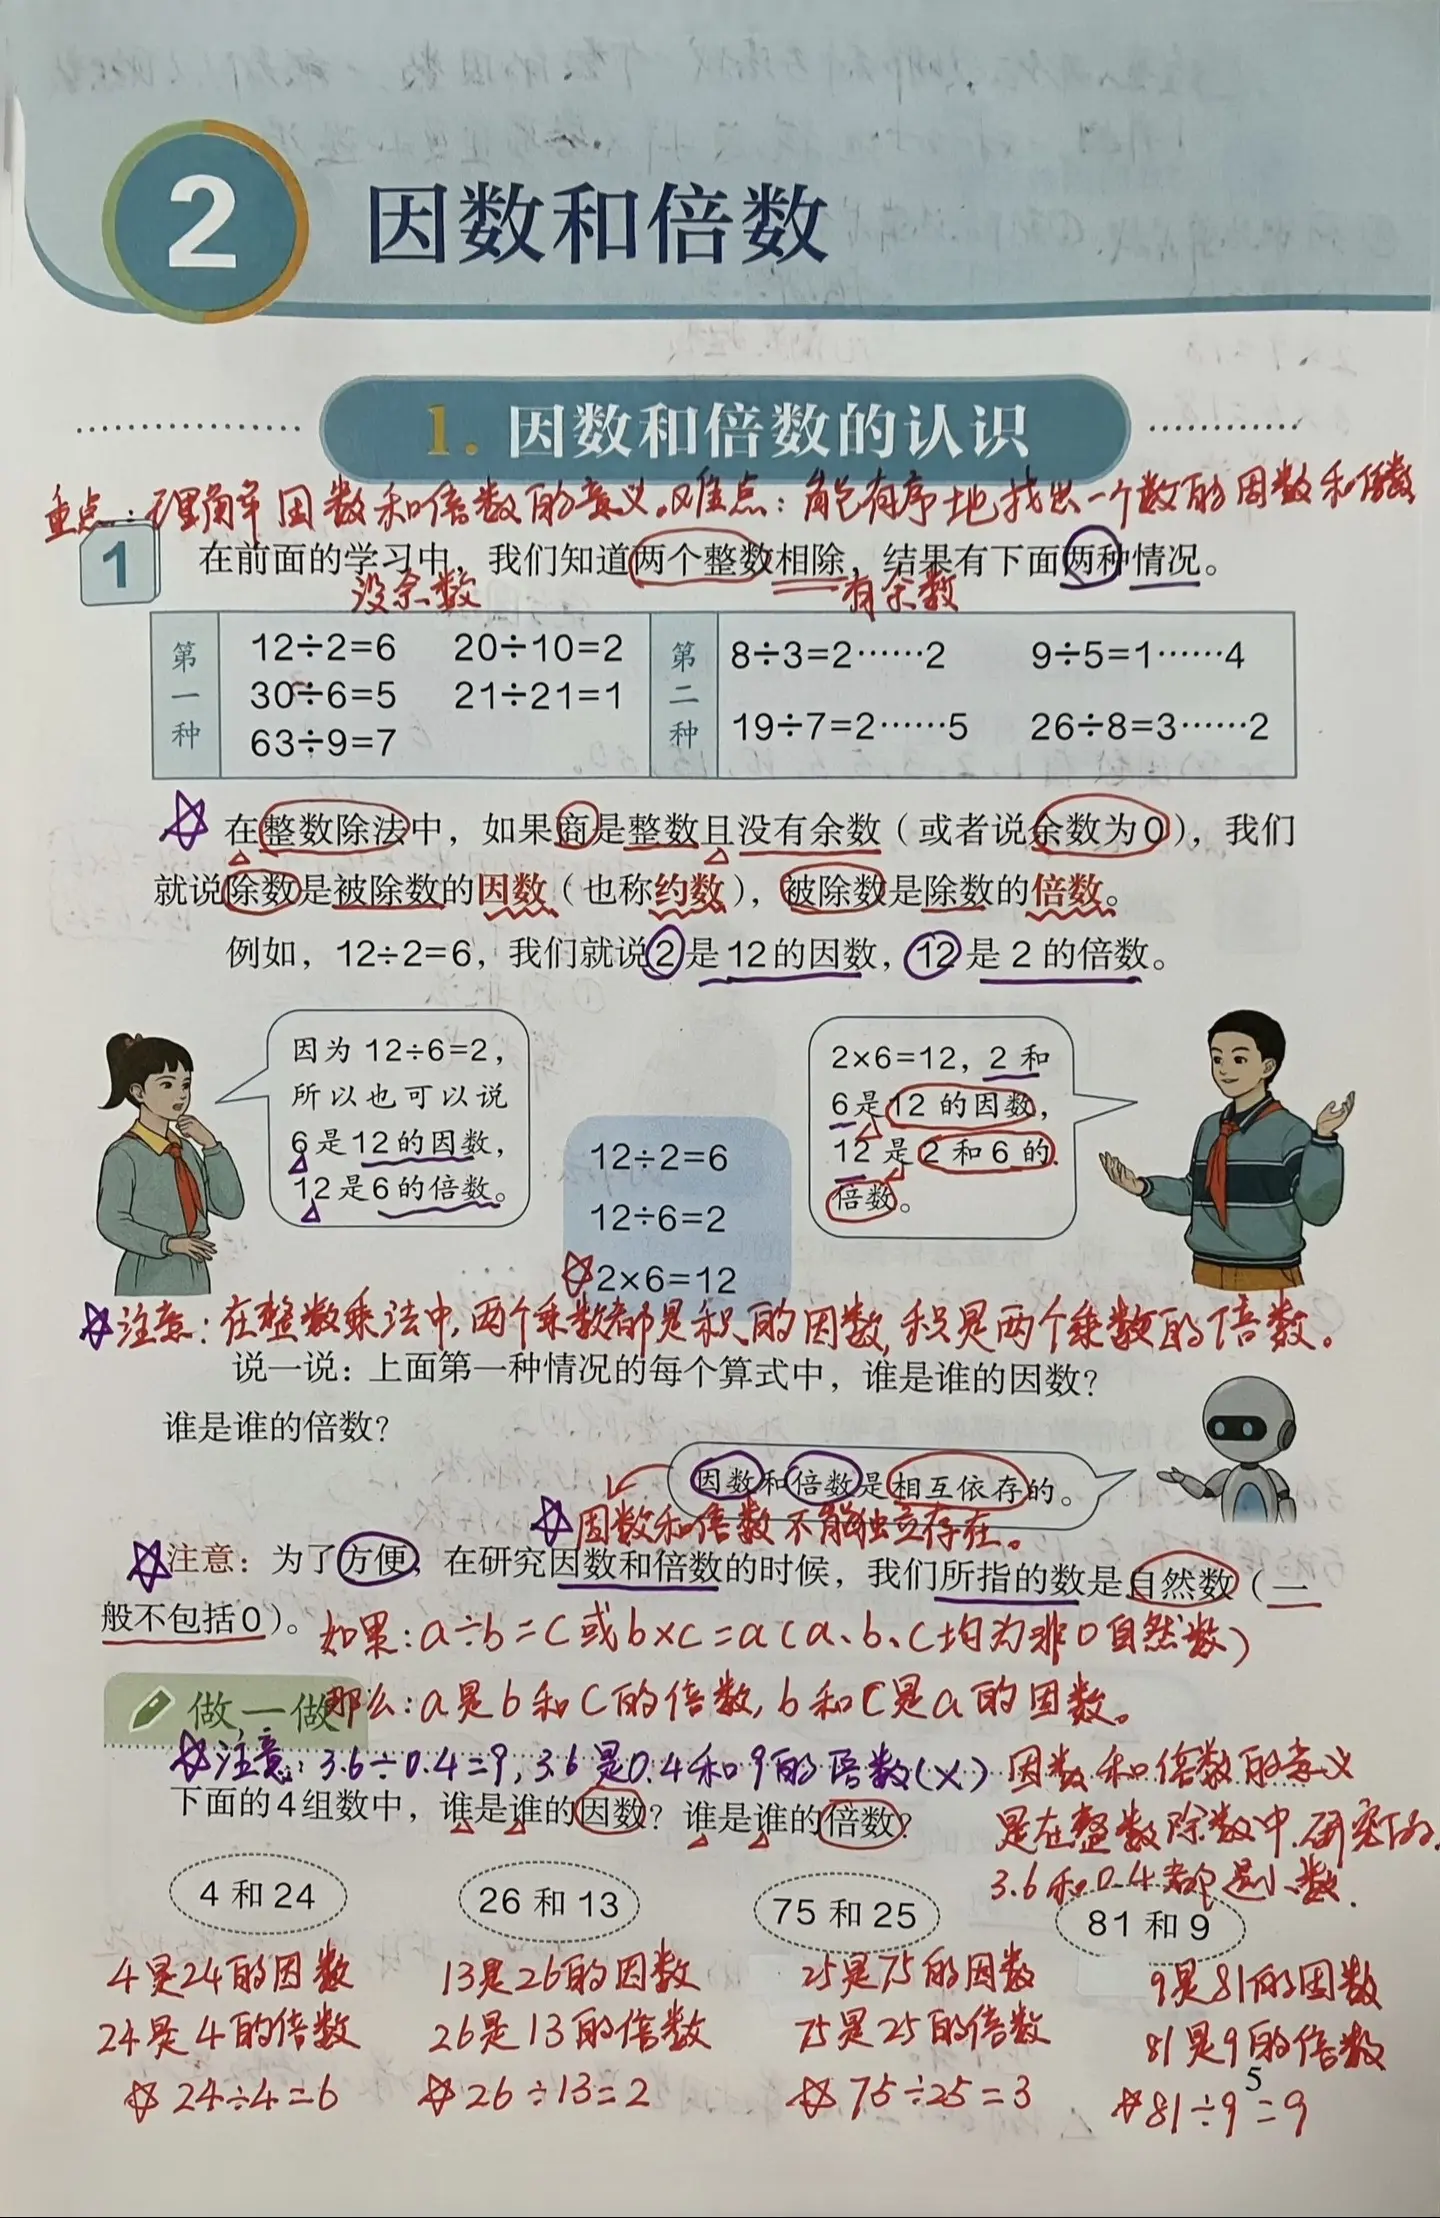 2 因数和倍数
1. 因数和倍数的认识
重点：理解因数和倍数的意义。难点：能有序地找出一个数的因数和倍数
1 在前面的学习中，我们知道两个整数相除，结果有下面两种情况。
没余数 有余数
第一种
12÷2=6 20÷10=2
30÷6=5 21÷21=1
63÷9=7
第二种
8÷3=2……2 9÷5=1……4
19÷7=2……5 26÷8=3……2
在整数除法中，如果商是整数且没有余数（或者说余数为0），我们
就说除数是被除数的因数（也称约数），被除数是除数的倍数。
例如，12÷2=6，我们就说2是12的因数，12是2的倍数。
因为12÷6=2，
所以也可以说
6是12的因数，
12是6的倍数。
12÷2=6
12÷6=2
2×6=12
2×6=12，2和
6是12的因数，
12是2和6的
倍数。
注意：在整数乘法中，两个乘数都是积的因数，积是两个乘数的倍数。
说一说：上面第一种情况的每个算式中，谁是谁的因数？
谁是谁的倍数？
因数和倍数是相互依存的。
因数和倍数不能独立存在。
注意：为了方便，在研究因数和倍数的时候，我们所指的数是自然数（一
般不包括0）。
如果：a÷b=c或b×c=a（a、b、c均为非0自然数）
做一做
那么：a是b和c的倍数，b和c是a的因数。
注意：3.6÷0.4=9，3.6是0.4和9的倍数（×）
因数和倍数的意义
是在整数除数中研究的，
3.6和0.4都是小数.
下面的4组数中，谁是谁的因数？谁是谁的倍数？
4和24 26和13 75和25 81和9
4是24的因数 13是26的因数 25是75的因数 9是81的因数
24是4的倍数 26是13的倍数 75是25的倍数 81是9的倍数
24÷4=6 26÷13=2 75÷25=3 81÷9=9
5